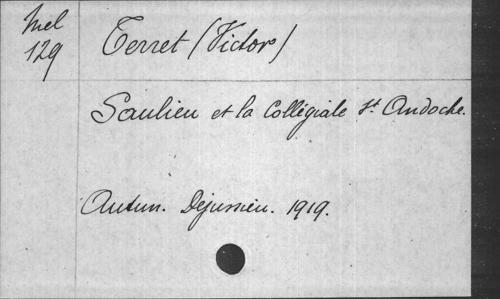 Mel
129
Terret (Victor)
Saulieu et la Collégiale St Andoche.
Autun. Dejussieu. 1919.